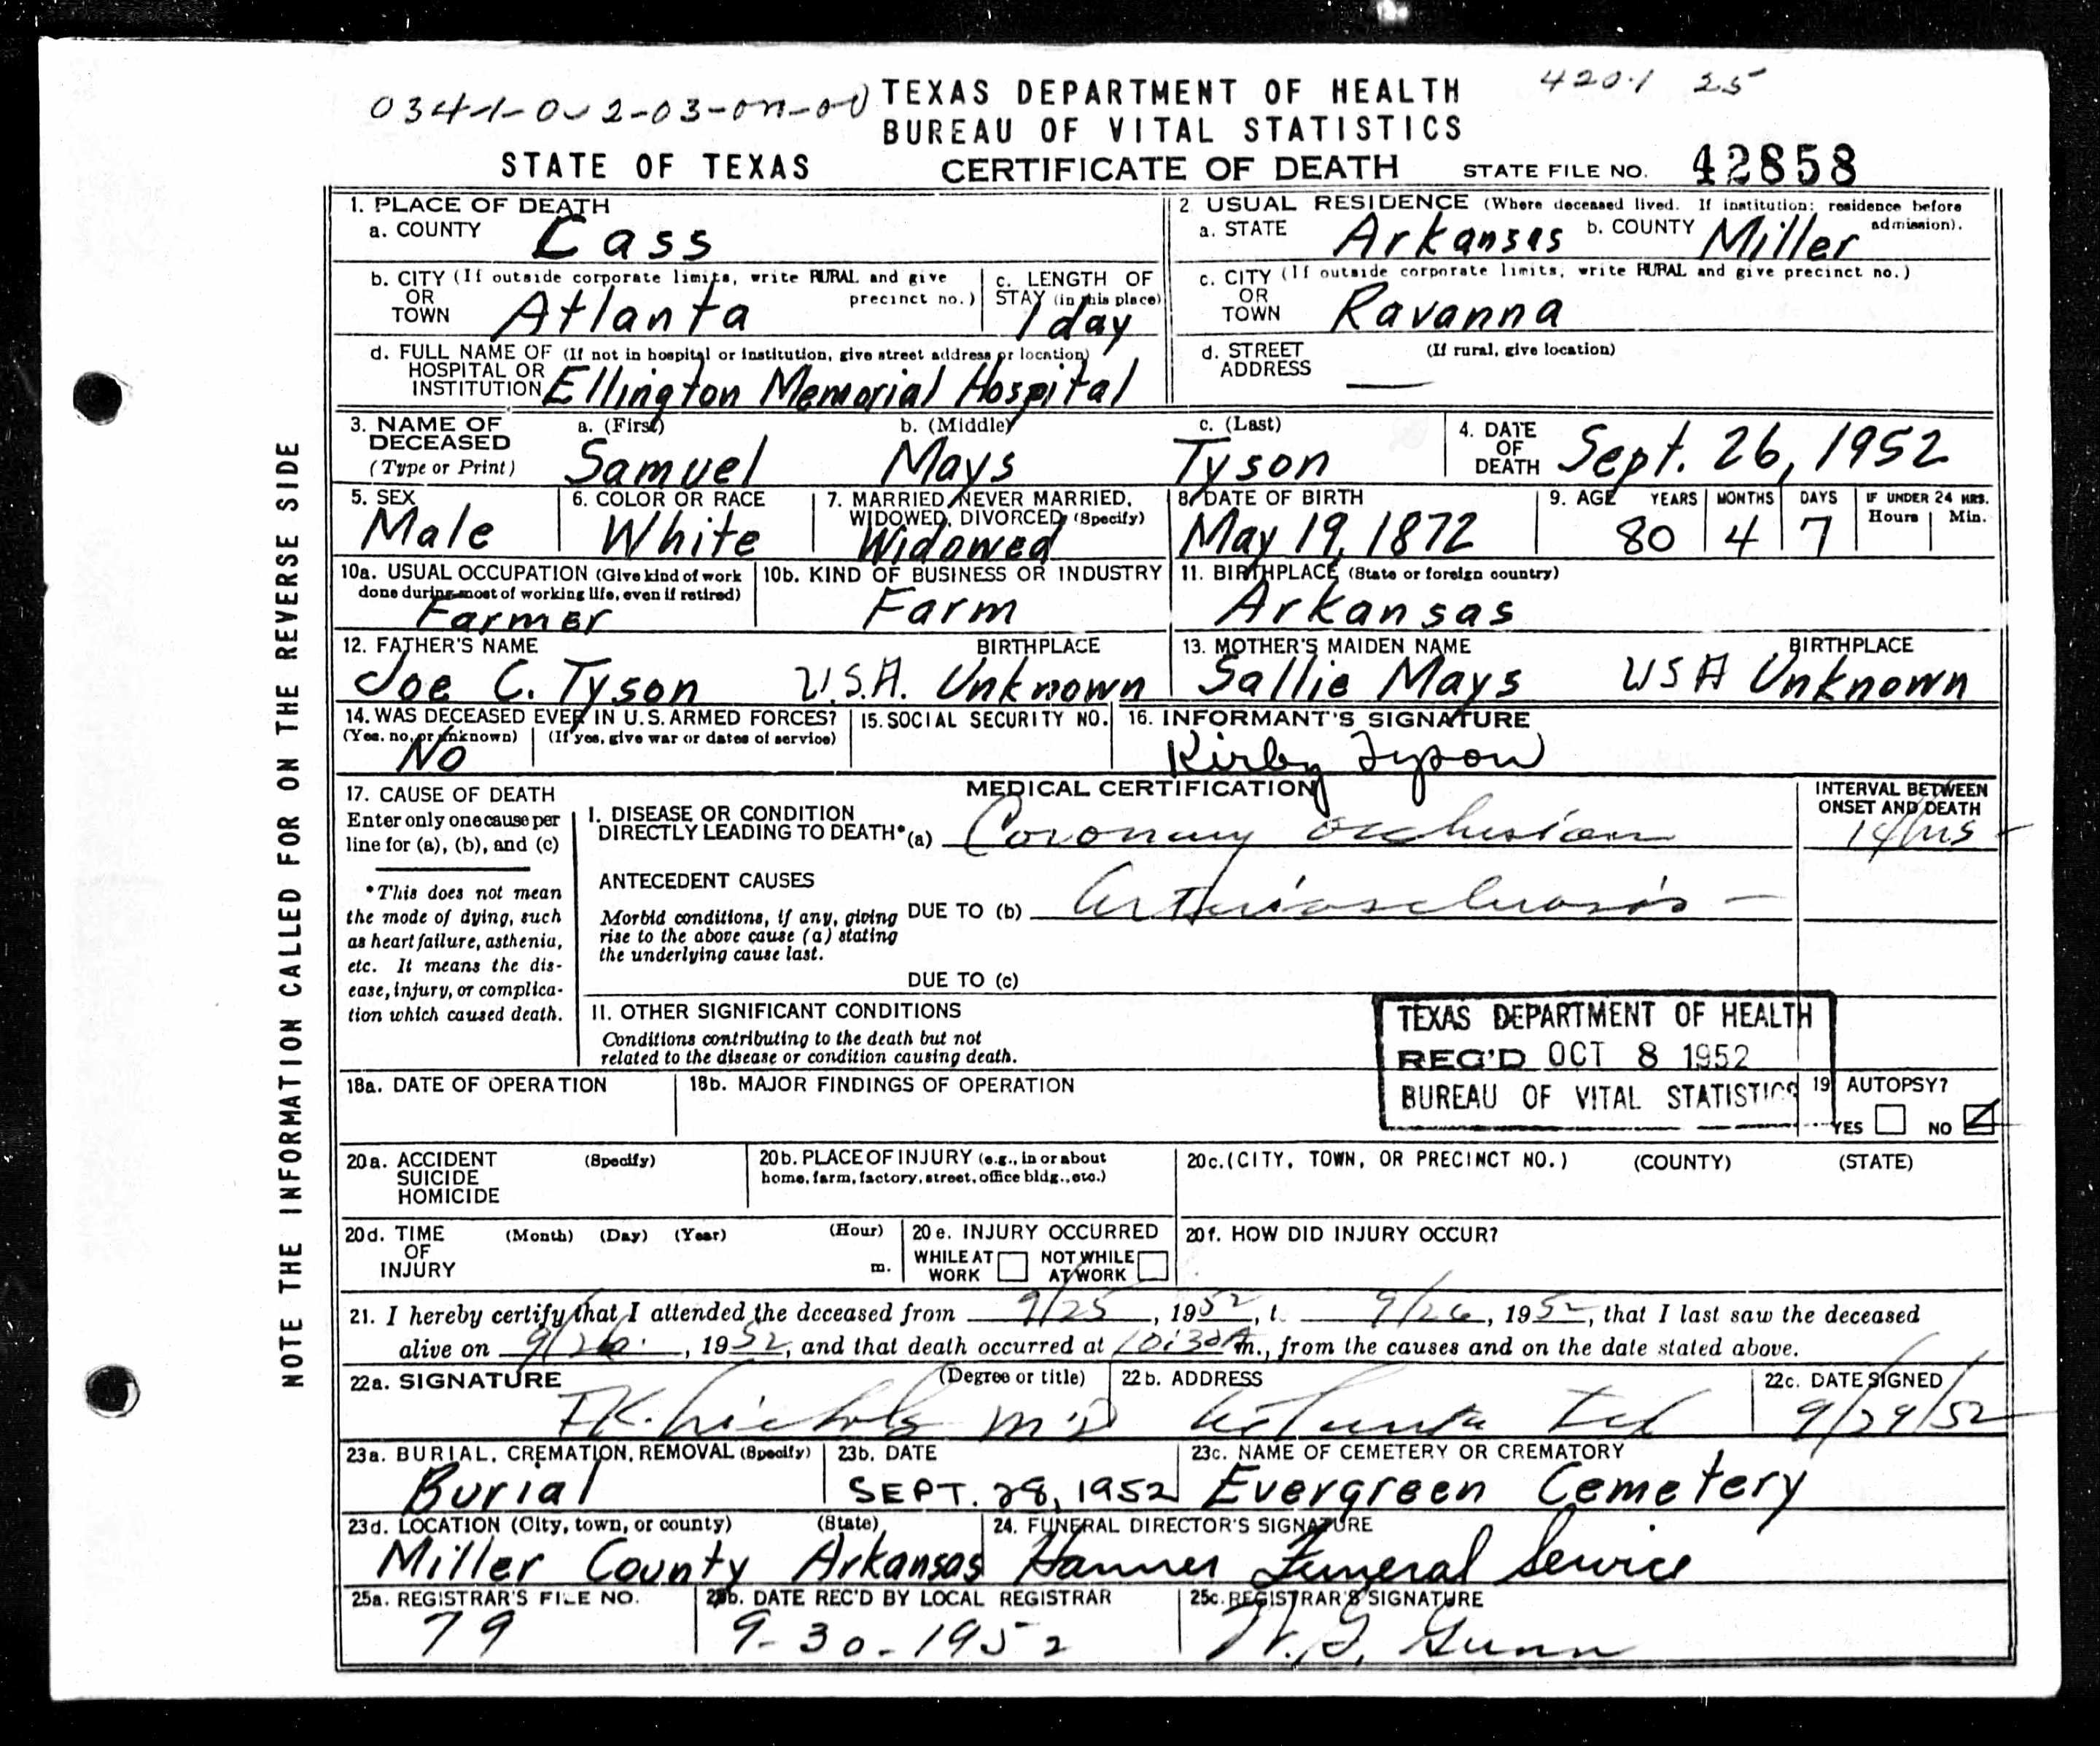 TEXAS DEPARTMENT OF HEALTH 420.1 25
BUREAU OF VITAL STATISTICS
STATE OF TEXAS CERTIFICATE OF DEATH STATE FILE NO. 42858
NOTE THE INFORMATION CALLED FOR ON THE REVERSE SIDE
1. PLACE OF DEATH
a. COUNTY Cass
2. USUAL RESIDENCE (Where deceased lived. If institution: residence before admission).
a. STATE Arkansas b. COUNTY Miller
b. CITY (If outside corporate limits, write RURAL and give precinct no.)
OR
TOWN Atlanta
c. LENGTH OF
STAY (in this place)
1 day
c. CITY (If outside corporate limits, write RURAL and give precinct no.)
OR
TOWN Ravanna
d. FULL NAME OF (If not in hospital or institution, give street address or location)
HOSPITAL OR
INSTITUTION Ellington Memorial Hospital
d. STREET (If rural, give location)
ADDRESS —
3. NAME OF DECEASED (Type or Print)
a. (First) b. (Middle) c. (Last)
Samuel Mays Tyson
4. DATE OF DEATH Sept. 26, 1952
5. SEX
Male
6. COLOR OR RACE
White
7. MARRIED, NEVER MARRIED,
WIDOWED, DIVORCED, (Specify)
Widowed
8. DATE OF BIRTH
May 19, 1872
9. AGE YEARS MONTHS DAYS IF UNDER 24 HRS.
Hours Min.
80 4 7
10a. USUAL OCCUPATION (Give kind of work
done during most of working life, even if retired)
Farmer
10b. KIND OF BUSINESS OR INDUSTRY
Farm
11. BIRTHPLACE (State or foreign country)
Arkansas
12. FATHER'S NAME BIRTHPLACE
Joe C. Tyson U.S.A. Unknown
13. MOTHER'S MAIDEN NAME BIRTHPLACE
Sallie Mays USA Unknown
14. WAS DECEASED EVER IN U.S. ARMED FORCES?
(Yes, no, or unknown) (If yes, give war or dates of service)
No
15. SOCIAL SECURITY NO.
16. INFORMANT'S SIGNATURE
Kirby Tyson
17. CAUSE OF DEATH
Enter only one cause per
line for (a), (b), and (c)
*This does not mean
the mode of dying, such
as heart failure, asthenia,
etc. It means the dis-
ease, injury, or complica-
tion which caused death.
MEDICAL CERTIFICATION
INTERVAL BETWEEN
ONSET AND DEATH
I. DISEASE OR CONDITION
DIRECTLY LEADING TO DEATH* (a) Coronary occlusion
ANTECEDENT CAUSES
Morbid conditions, if any, giving
rise to the above cause (a) stating
the underlying cause last.
DUE TO (b) Arteriosclerosis —
DUE TO (c)
II. OTHER SIGNIFICANT CONDITIONS
Conditions contributing to the death but not
related to the disease or condition causing death.
TEXAS DEPARTMENT OF HEALTH
REC'D OCT 8 1952
BUREAU OF VITAL STATISTICS
18a. DATE OF OPERATION
18b. MAJOR FINDINGS OF OPERATION
19 AUTOPSY?
YES NO
20a. ACCIDENT (Specify)
SUICIDE
HOMICIDE
20b. PLACE OF INJURY (e.g., in or about
home, farm, factory, street, office bldg., etc.)
20c. (CITY, TOWN, OR PRECINCT NO.) (COUNTY) (STATE)
20d. TIME (Month) (Day) (Year) (Hour)
OF
INJURY m.
20e. INJURY OCCURRED
WHILE AT WORK NOT WHILE AT WORK
20f. HOW DID INJURY OCCUR?
21. I hereby certify that I attended the deceased from 9/25, 1952, t. 9/26, 1952, that I last saw the deceased
alive on 9/26, 1952, and that death occurred at 10:30 A m., from the causes and on the date stated above.
22a. SIGNATURE (Degree or title)
Nichols M.D
22b. ADDRESS
Atlanta Tex
22c. DATE SIGNED
9/29/52
23a. BURIAL, CREMATION, REMOVAL (Specify)
Burial
23b. DATE
SEPT. 28, 1952
23c. NAME OF CEMETERY OR CREMATORY
Evergreen Cemetery
23d. LOCATION (City, town, or county) (State)
Miller County Arkansas
24. FUNERAL DIRECTOR'S SIGNATURE
Hanner Funeral Service
25a. REGISTRAR'S FILE NO.
79
25b. DATE REC'D BY LOCAL REGISTRAR
9-30-1952
25c. REGISTRAR'S SIGNATURE
Gunn